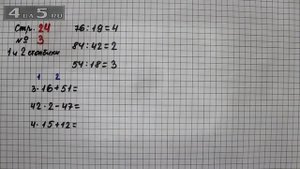 4 on 5 .ru
Стр. 24
№ 3
1 и 2 столбики
76:19=4
84:42=2
54:18=3
1 2
3·16+51=
42·2-47=
4·15+12=